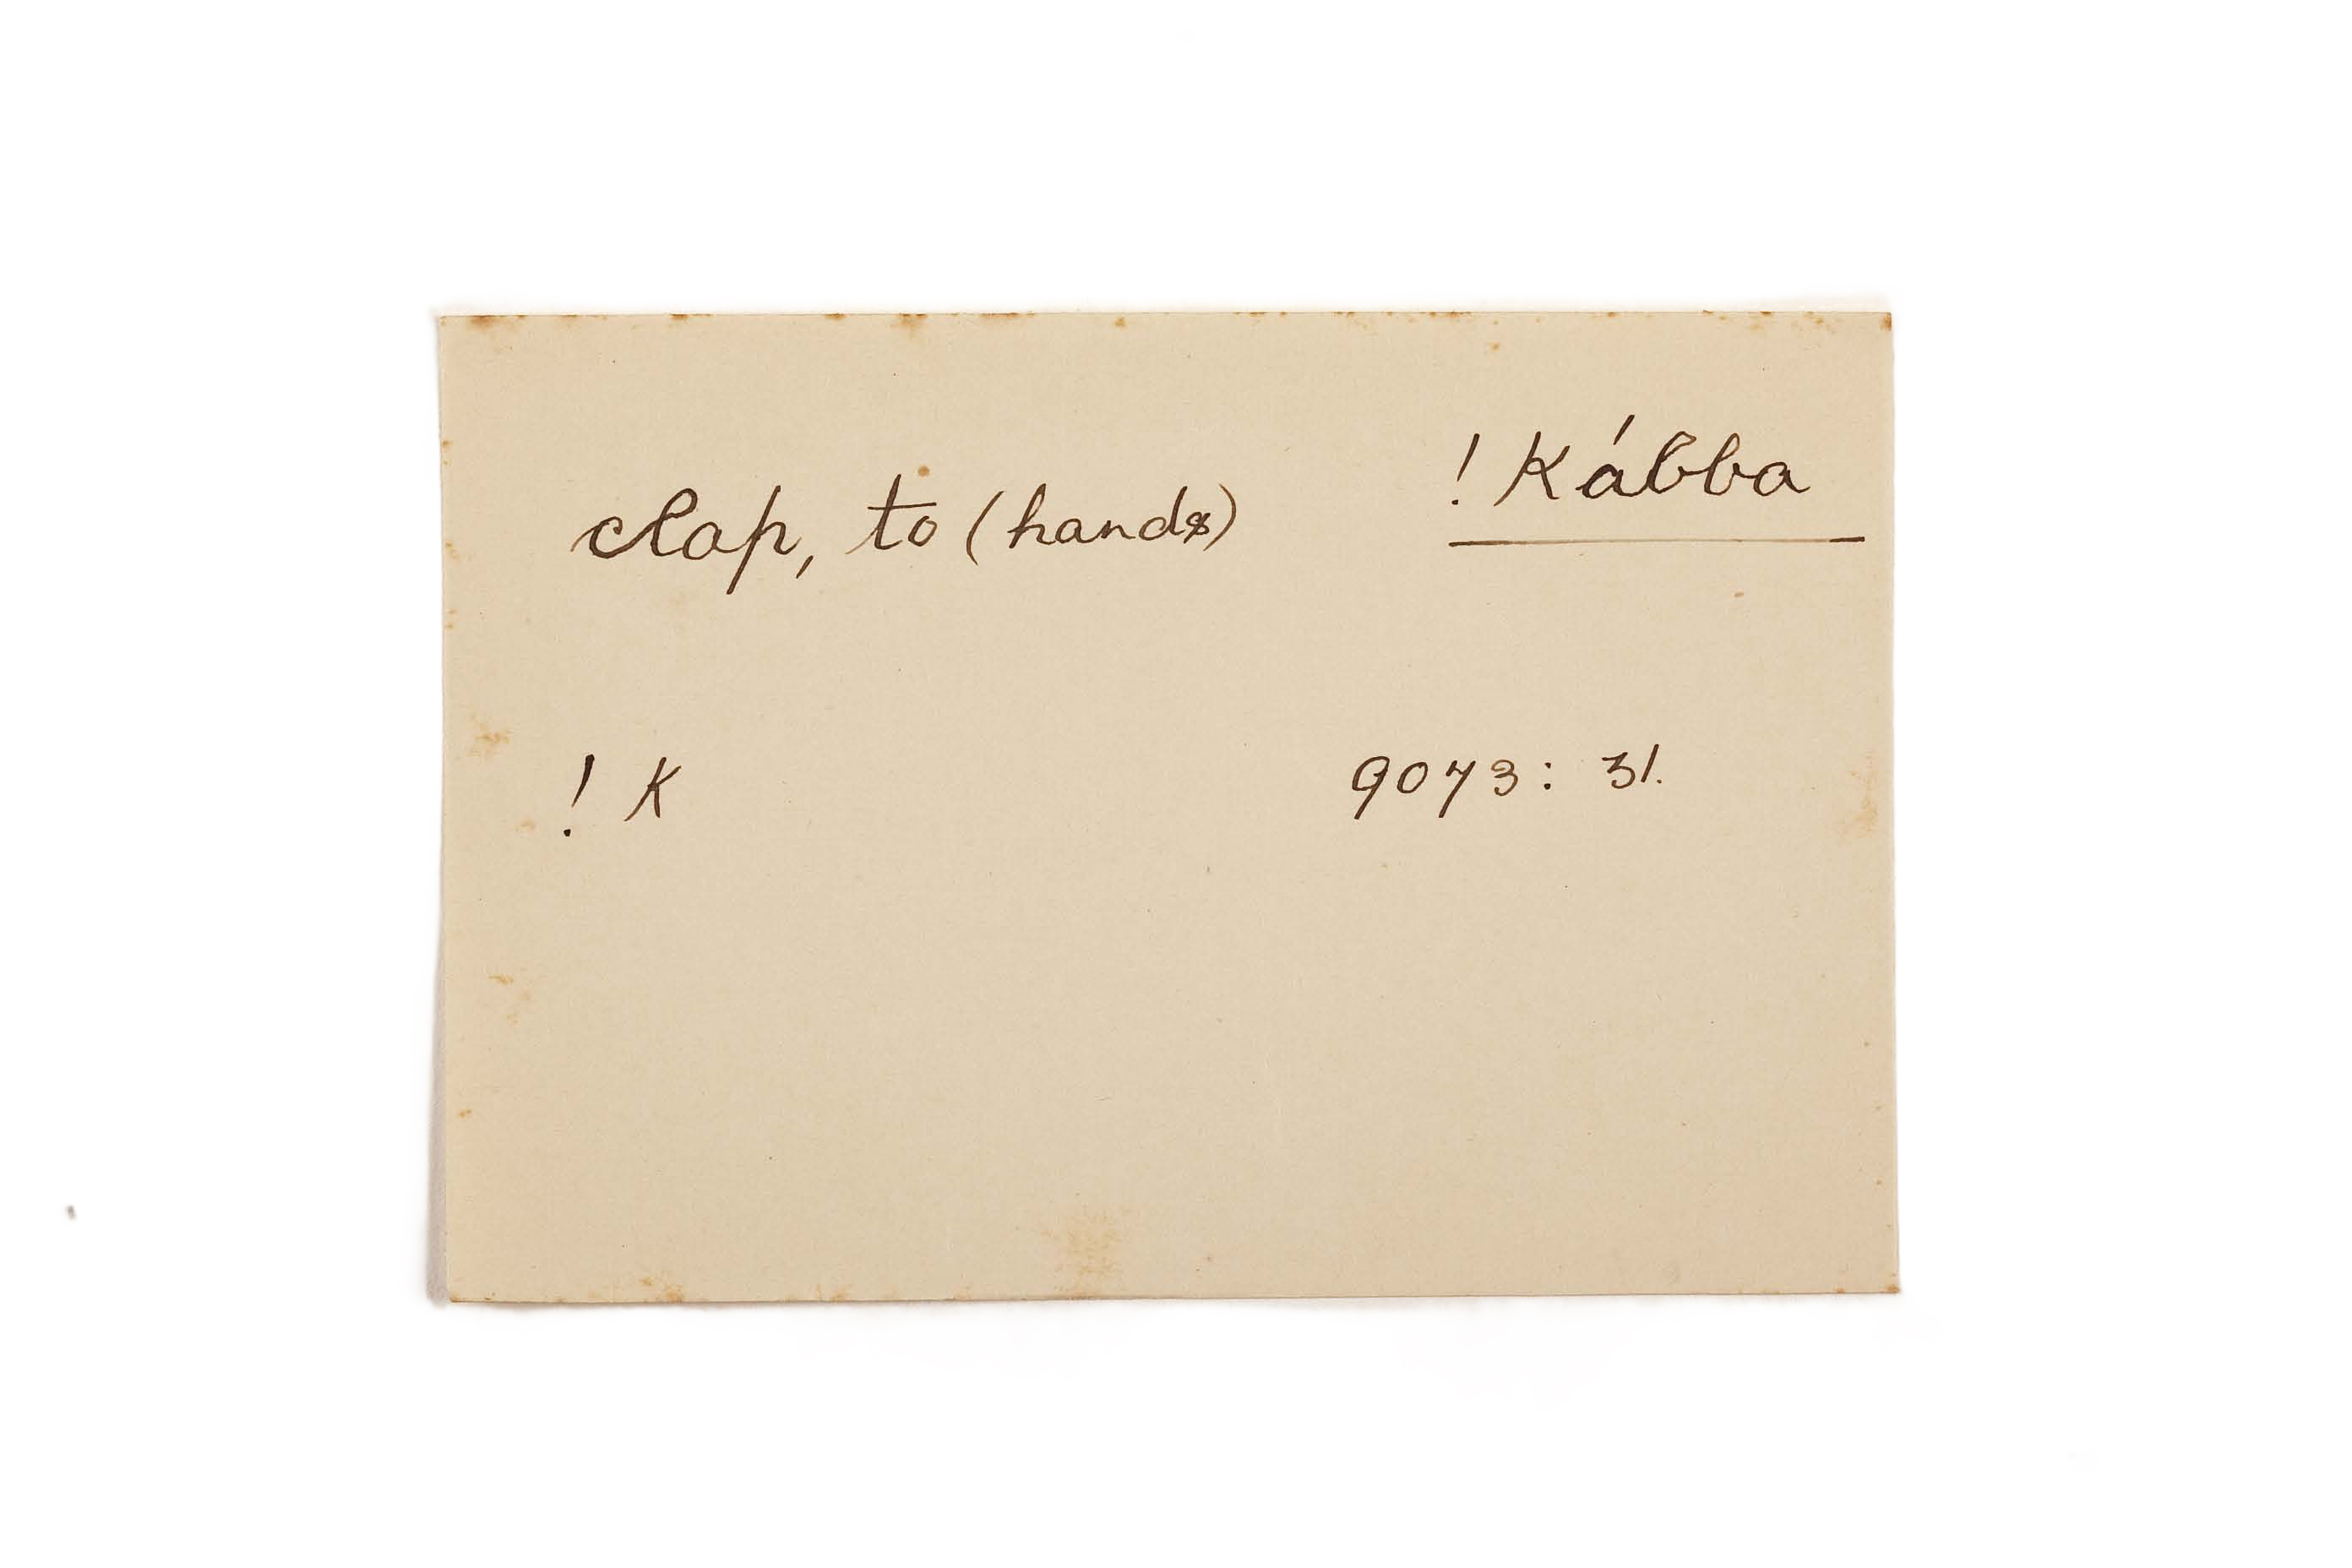 ! Kábba
clap, to (hands)
! K 9073: 31.